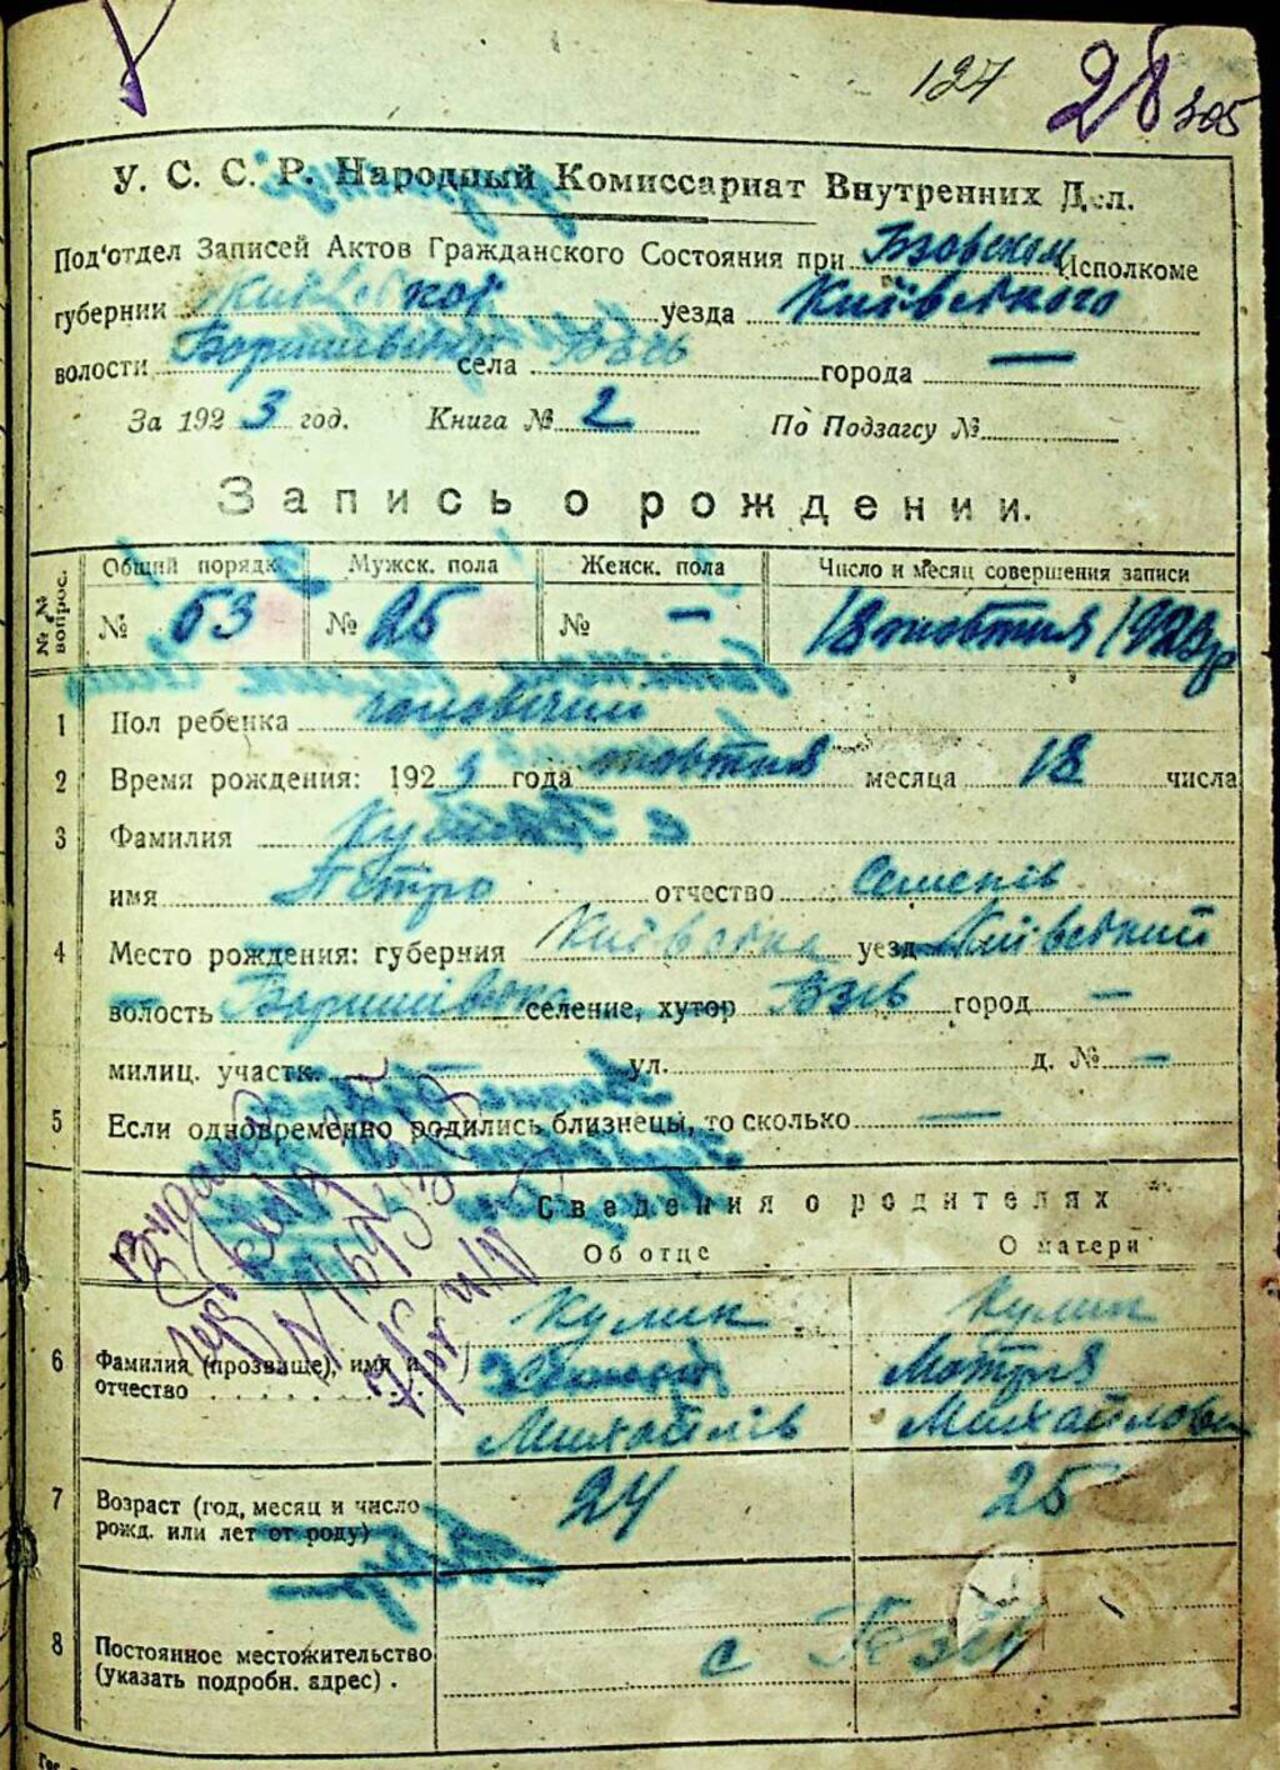 127 26 305
У. С. С. Р. Народный Комиссариат Внутренних Дел.
Под'отдел Записей Актов Гражданского Состояния при Бзовском Исполкоме
губернии Київської уезда Київського
волости села Бзів города —
За 1923 год. Книга № 2 По Подзагсу №
Запись о рождении.
№№ вопрос. Общий порядк. Мужск. пола Женск. пола Число и месяц совершения записи
№ 53 № 25 № — 18 жовтня 1923 р
1 Пол ребенка чоловічий
2 Время рождения: 1923 года жовтня месяца 18 числа
3 Фамилия
имя Петро отчество Семенів
4 Место рождения: губерния Київська уезд Київський
волость селение, хутор Бзів город —
милиц. участк. — ул. д. № —
5 Если одновременно родились близнецы, то сколько —
Сведения о родителях
Об отце О матери
Кулик Кулик
6 Фамилия (прозвище), имя и Мотря
отчество Михайлів
7 Возраст (год, месяц и число 24 25
рожд. или лет от роду)
8 Постоянное местожительство с
(указать подробн. адрес).